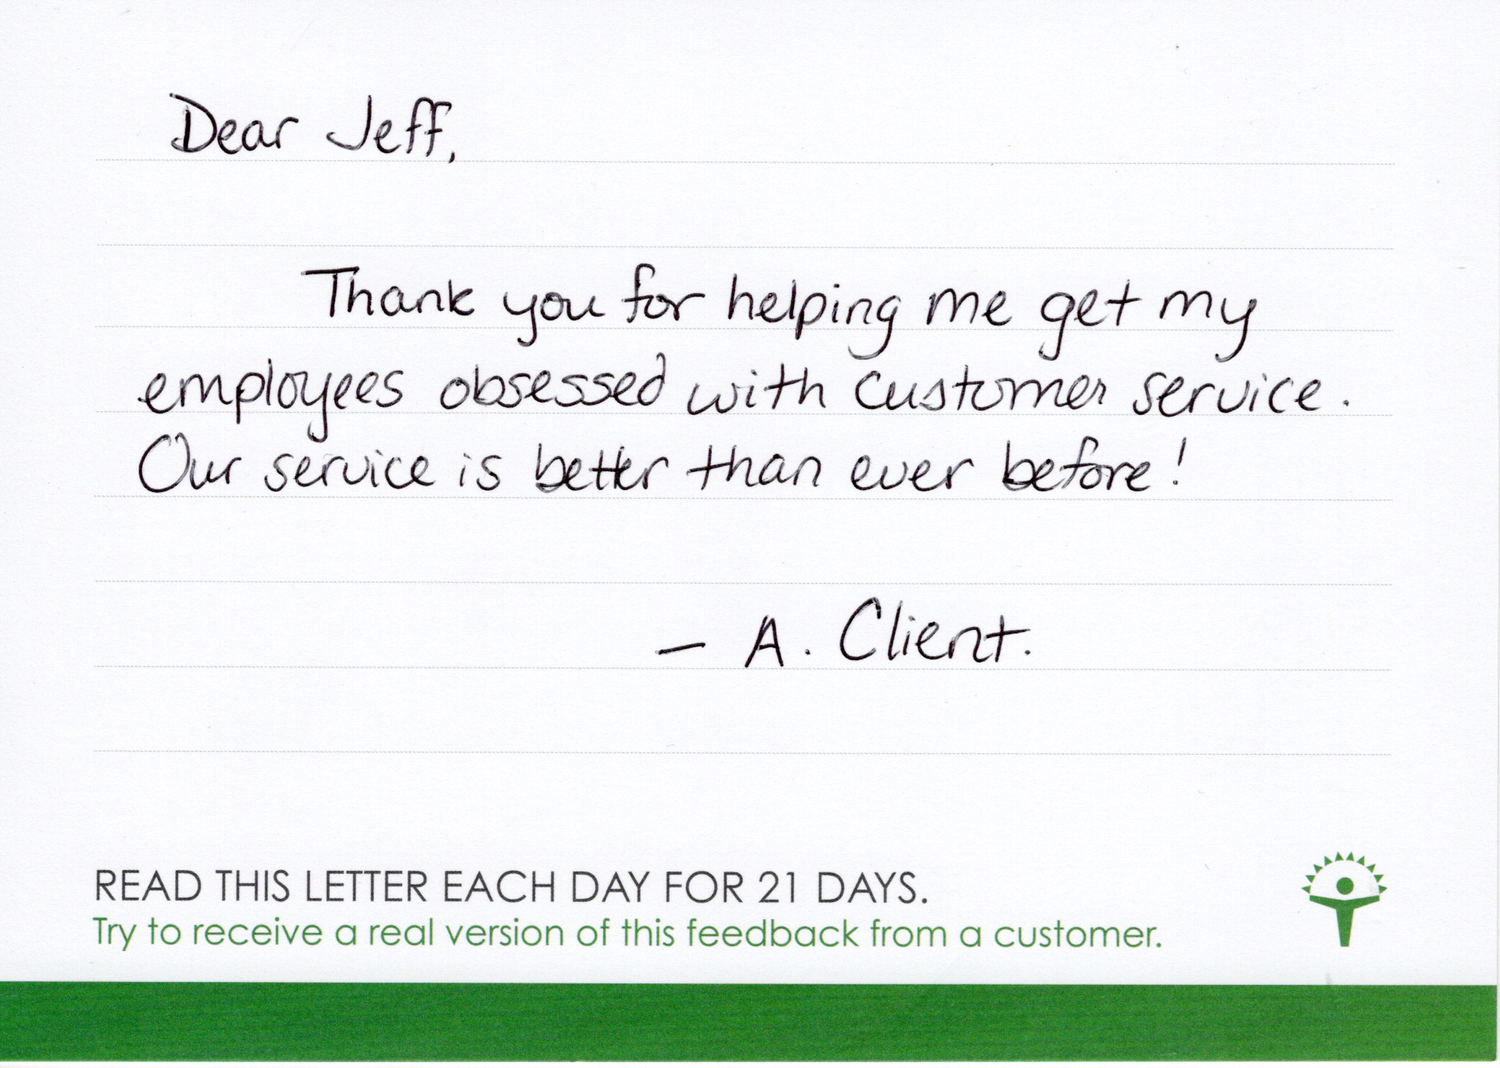 Dear Jeff,
Thank you for helping me get my
employees obsessed with customer service.
Our service is better than ever before!
– A. Client.
READ THIS LETTER EACH DAY FOR 21 DAYS.
Try to receive a real version of this feedback from a customer.